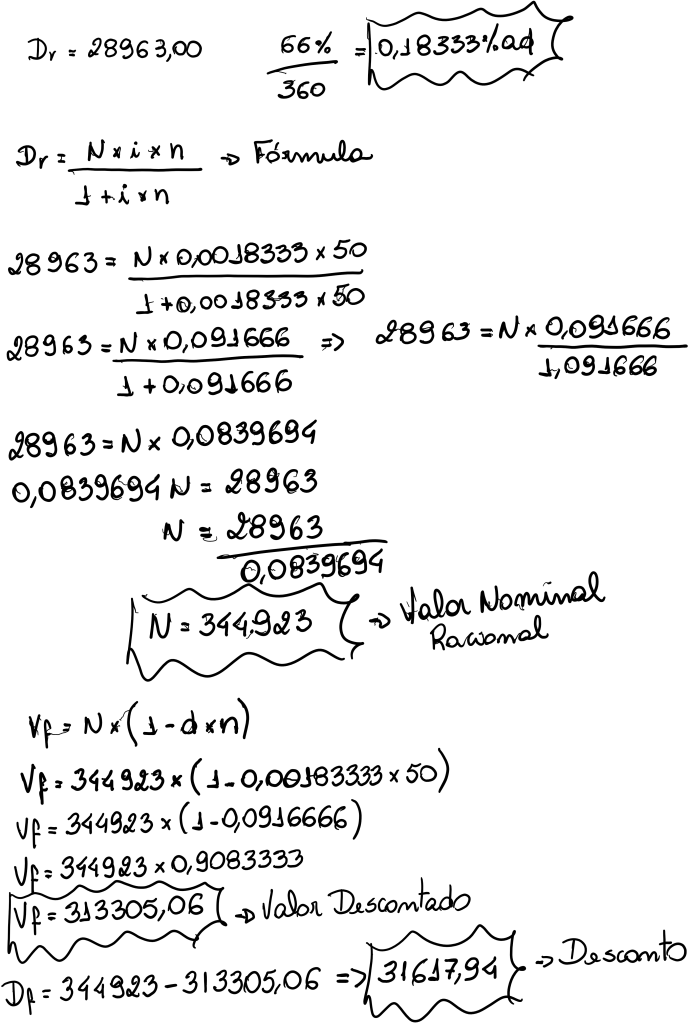 Dr = 28963,00 66% / 360 = 0,18333% ad
Dr = N × i × n / 1 + i × n → Fórmula
28963 = N × 0,0018333 × 50 / 1 + 0,0018333 × 50
28963 = N × 0,091666 / 1 + 0,091666 => 28963 = N × 0,091666 / 1,091666
28963 = N × 0,0839694
0,0839694 N = 28963
N = 28963 / 0,0839694
N = 344.923 → Valor Nominal
Racional
Vf = N × (1 - d × n)
Vf = 344923 × (1 - 0,00183333 × 50)
Vf = 344923 × (1 - 0,0916666)
Vf = 344923 × 0,9083333
Vf = 313305,06 → Valor Descontado
Df = 344923 - 313305,06 => 31617,94 → Desconto